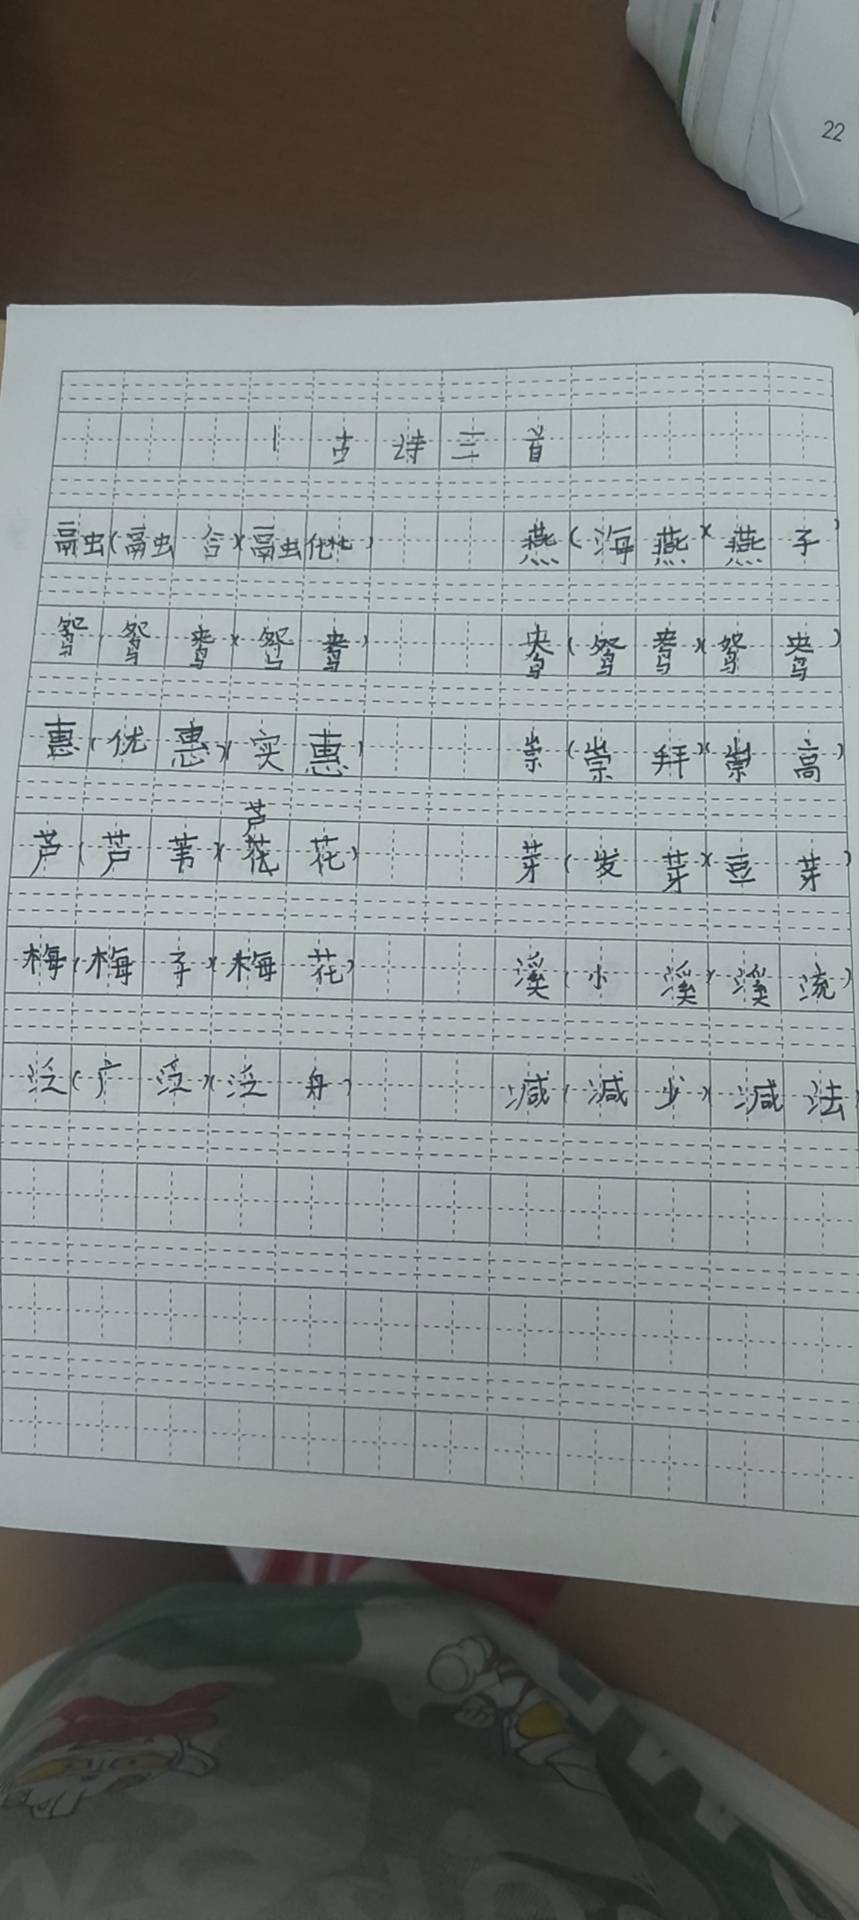 22
1 古诗三首
融(融合)(融化)燕(海燕)(燕子)
鸳(鸳鸯)(鸳鸯)鸯(鸳鸯)(鸳鸯)
惠(优惠)(实惠)崇(崇拜)(崇高)
芦
芦(芦苇)(花花)芽(发芽)(豆芽)
梅(梅子)(梅花)溪(小溪)(溪流)
泛(广泛)(泛舟)减(减少)(减法)